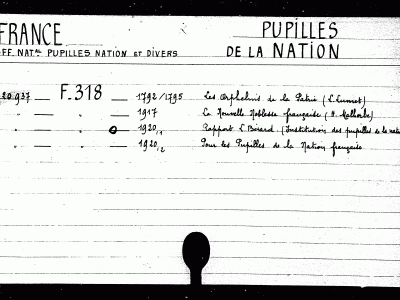 FRANCE PUPILLES
FF. NAT.les PUPILLES NATION ET DIVERS DE LA NATION
20.937 — F.318 — 1792/1795 Les Orphelins de la Patrie (L. Lumet)
" — " — 1917 La Nouvelle Noblesse française (
" — " — 1920,1 Rapport L. Bérard (Institution des pupilles de la nation
" — " — 1920,2 Pour les Pupilles de la Nation française